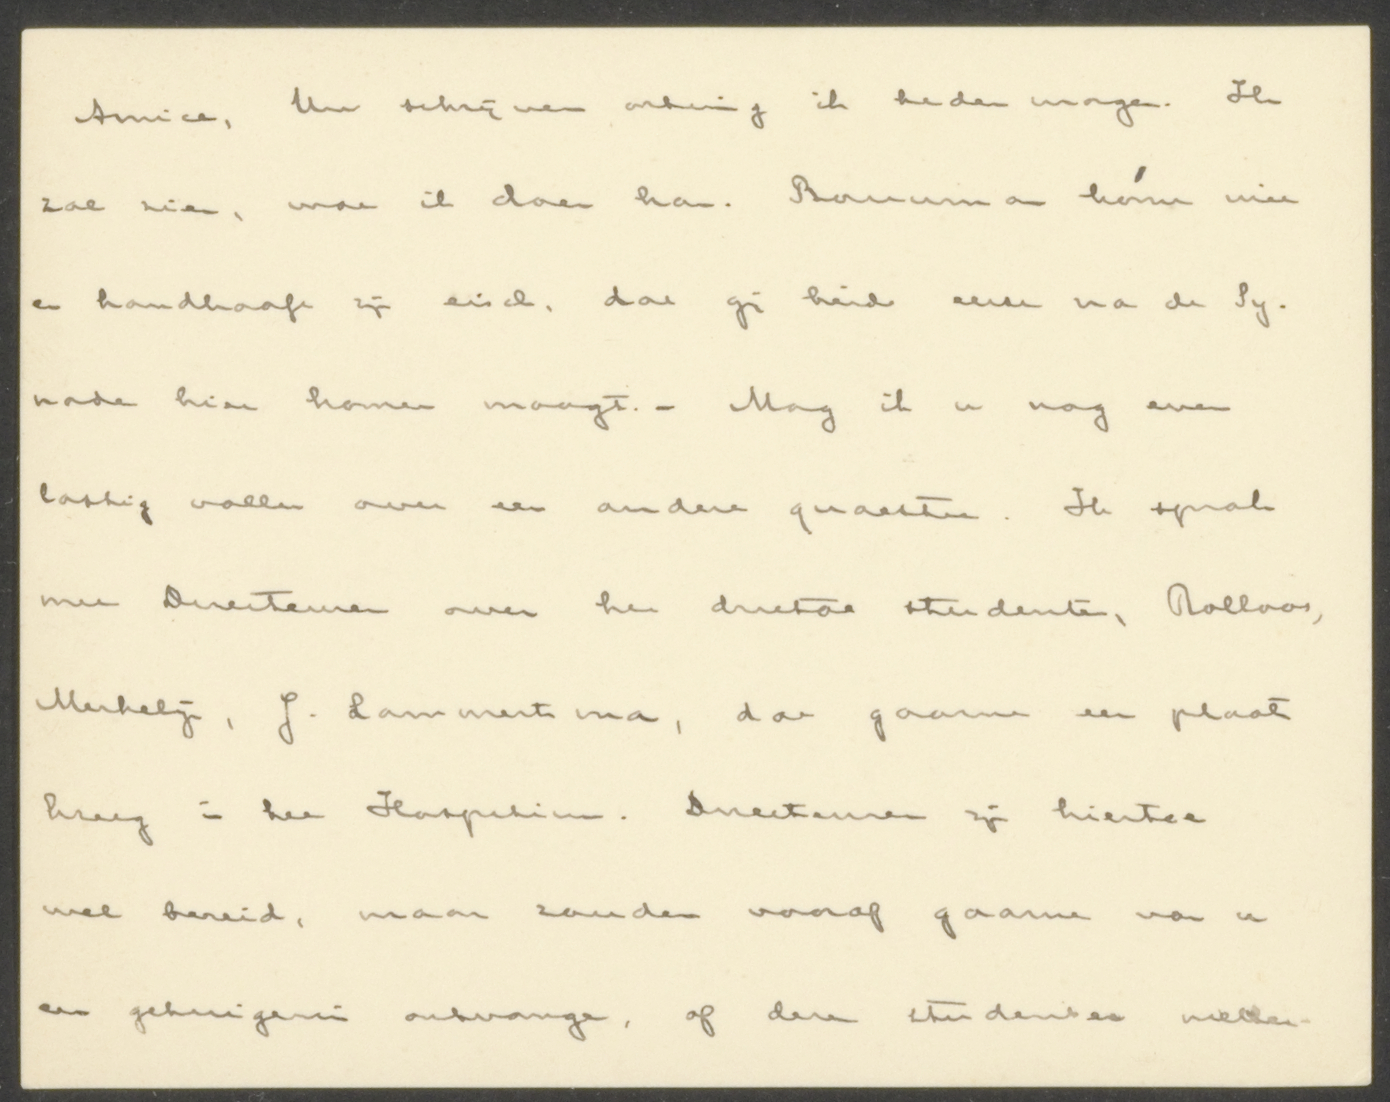 Amice, Uw schrijven ontving ik heden morgen. Ik
zal zien, wat ik doen kan. Bouwma kómt niet
en handhaaft zijn eisch, dat gij beide eerst na de Sy-
node hier komen moogt. - Mag ik u nog even
lastig vallen over een andere quaestie. Ik sprak
met Directeuren over het drietal studenten, Rolloos,
Merkelijn, J. Lammertsma, dat gaarne een plaats
kreeg in het Hospitium. Directeuren zijn hiertoe
wel bereid, maar zouden vooraf gaarne van u
een getuigenis ontvangen, of deze studenten